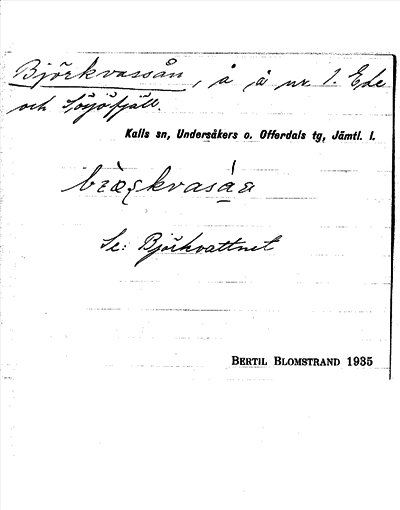 Björkvassån, å å nr 1. Ede
och Sösjöfjäll.
Kalls sn, Undersåkers o. Offerdals tg, Jämtl. l.
Se: Björkvattnet
BERTIL BLOMSTRAND 1935